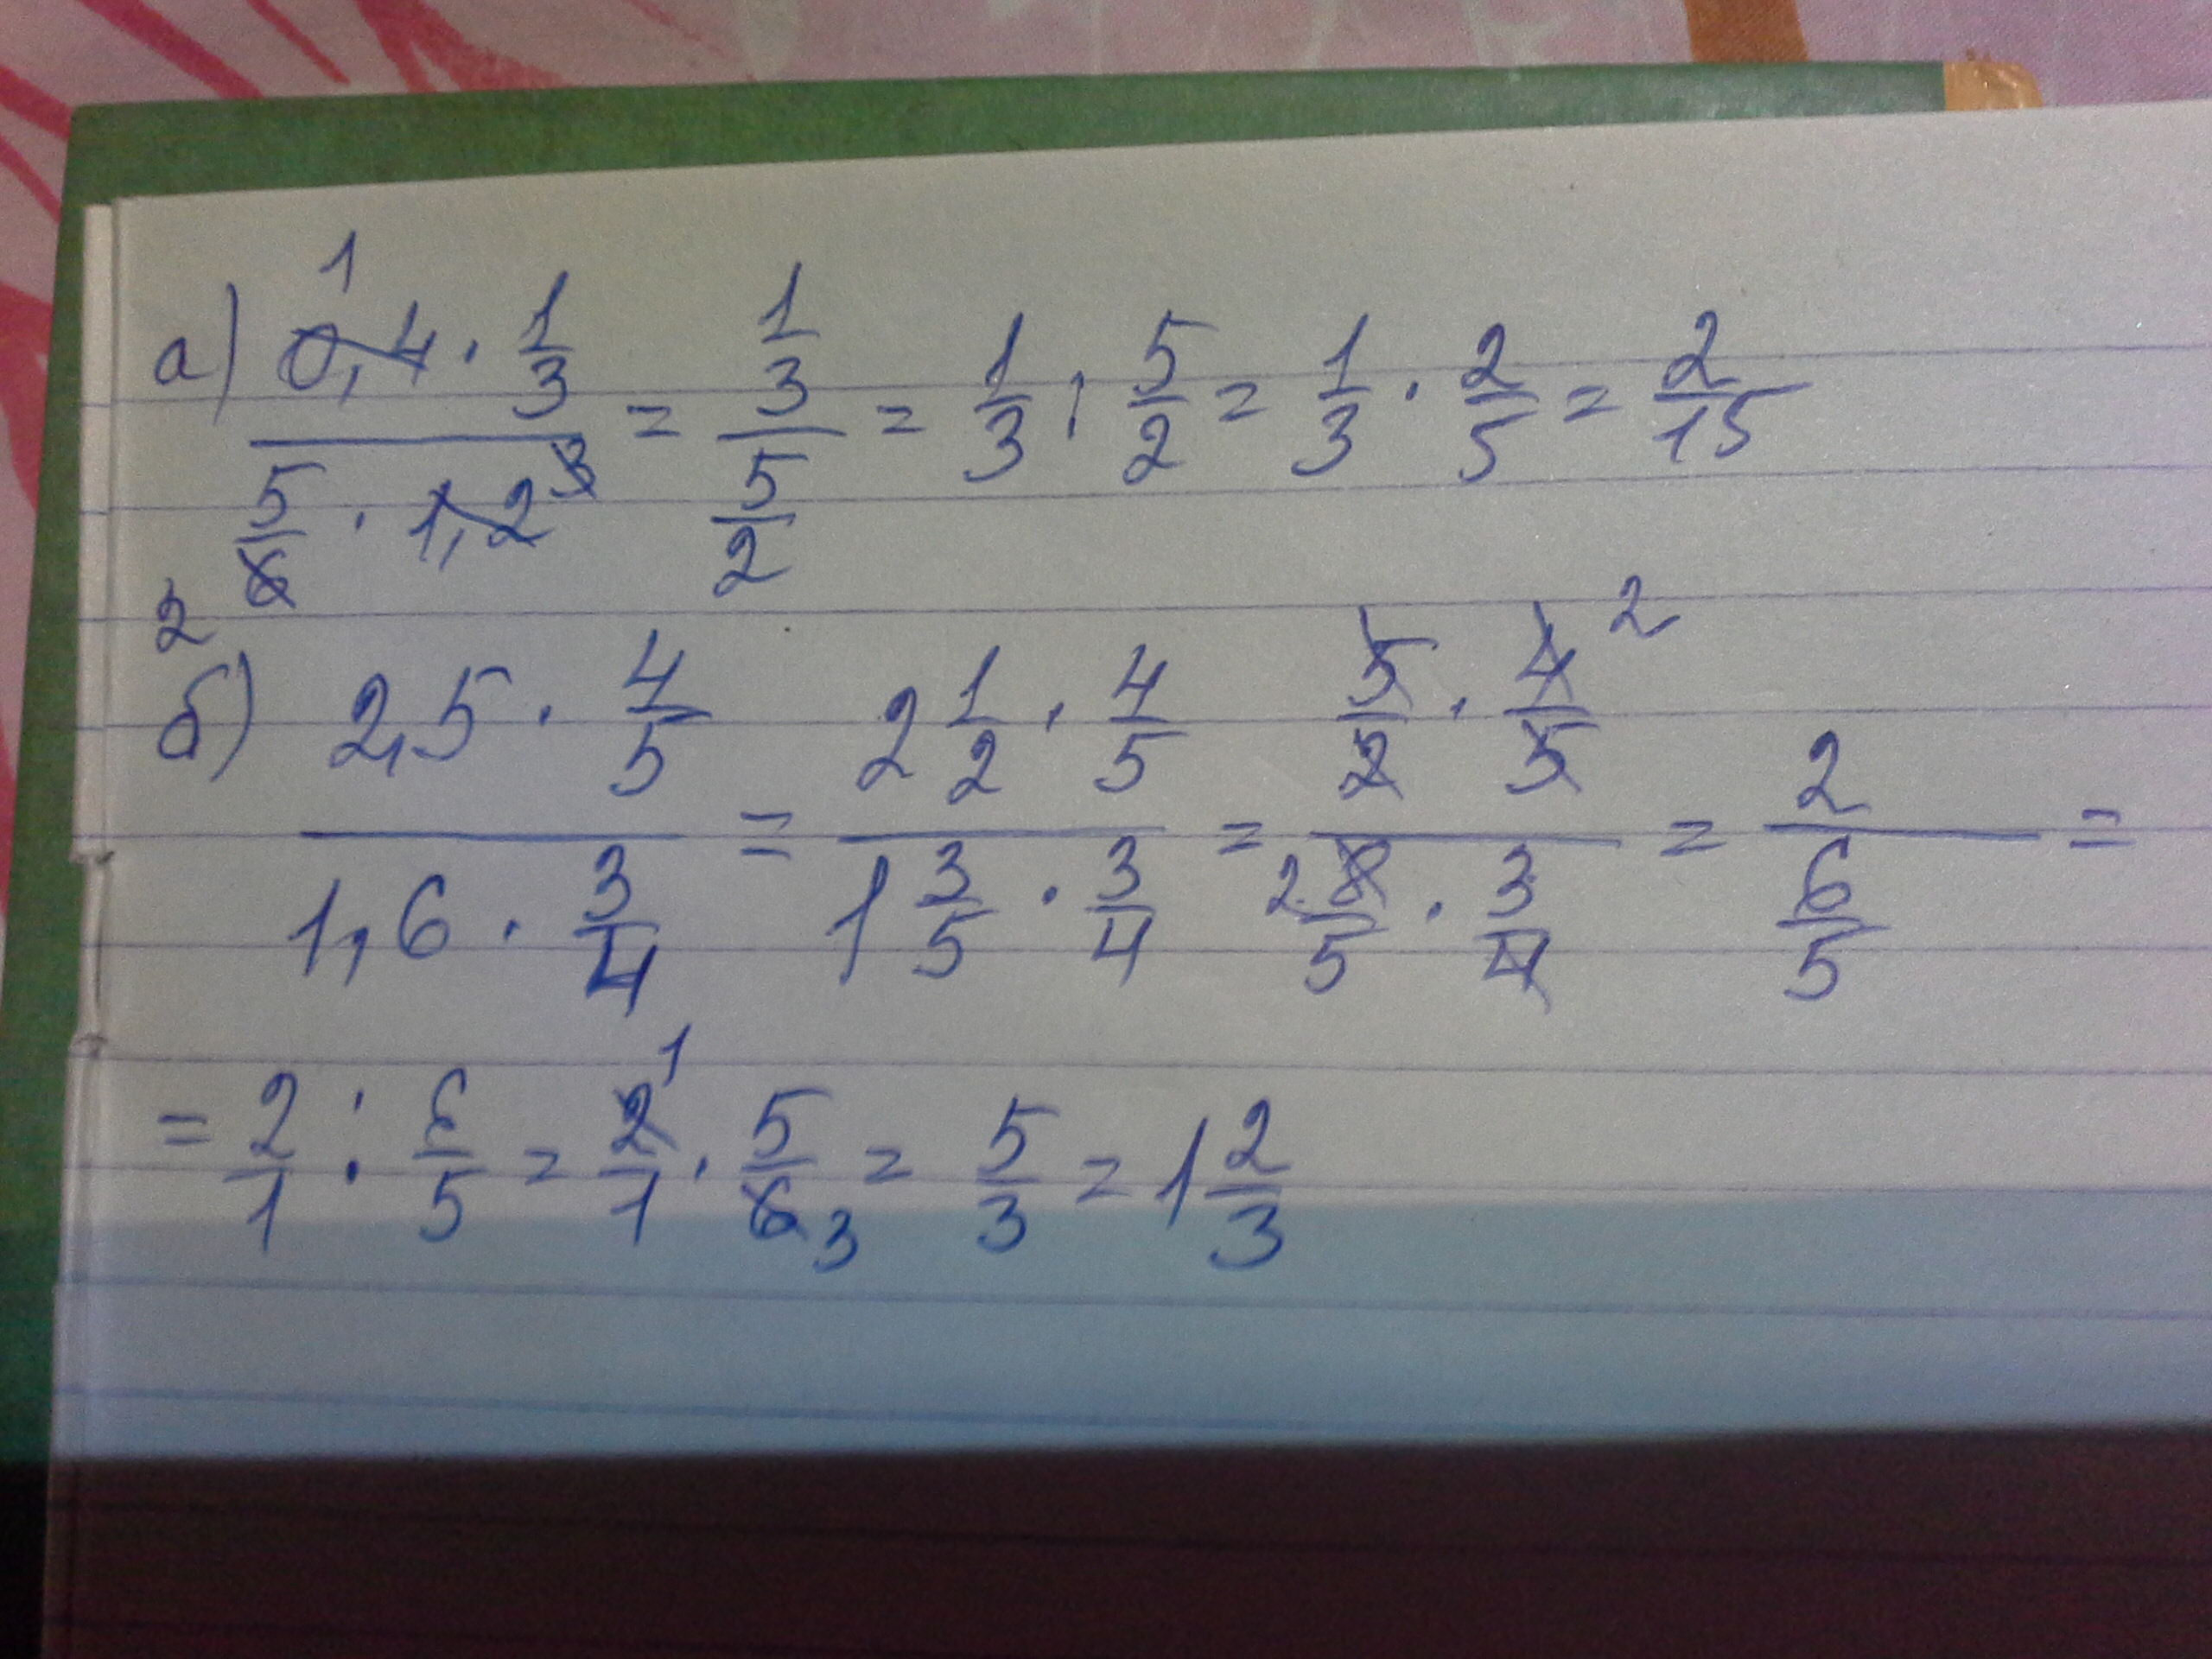 а) (0,4 · 1/3)/(5/6 · 1,2) = (1/3)/(5/2) = 1/3 : 5/2 = 1/3 · 2/5 = 2/15
1
3
2
б) (2,5 · 4/5)/(1,6 · 3/4) = (2 1/2 · 4/5)/(1 3/5 · 3/4) = (5/2 · 4/5)/(8/5 · 3/4) = 2/(6/5) =
2
2
= 2/1 : 6/5 = 2/1 · 5/6 = 5/3 = 1 2/3
1
3